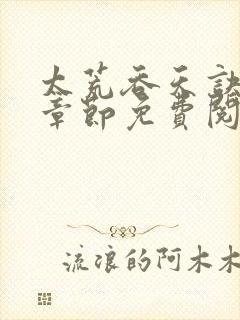 太荒吞天訣
章節免費閱
流浪的阿木木